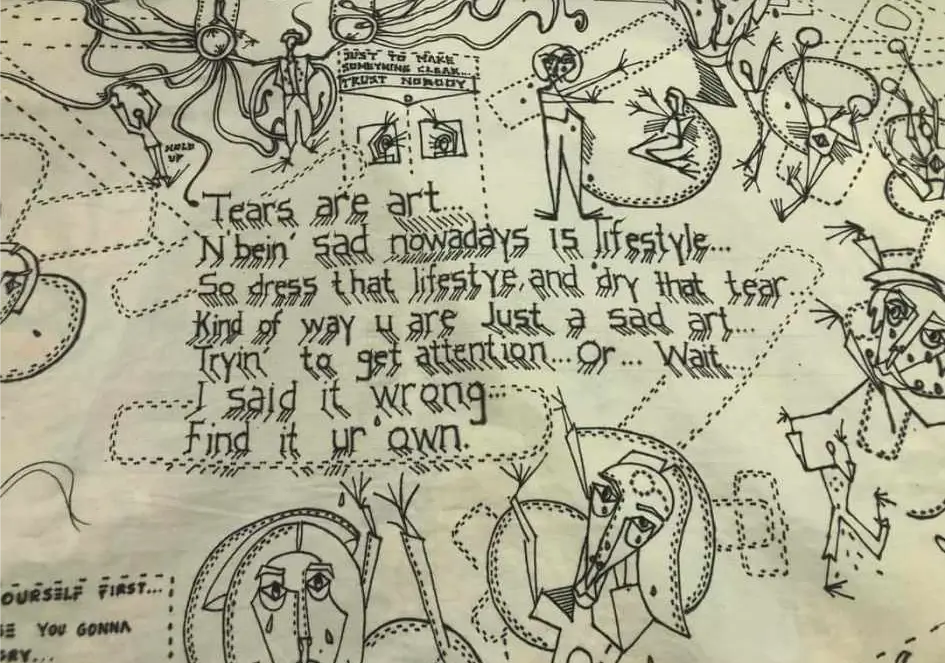 JUST TO MAKE
SOMETHING CLEAR...
TRUST NOBODY
HOLD
UP
Tears are art...
N'bein' sad nowadays is lifestyle...
So dress that lifestye, and dry that tear
Kind of way u are Just a sad art...
Tryin' to get attention... Or... Wait...
I said it wrong...
Find it ur own.
OURSELF FIRST...
SE YOU GONNA
GRY...